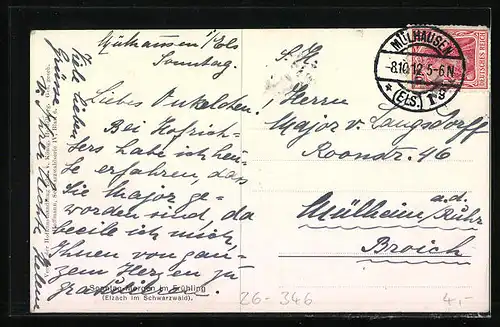 Mülhausen i/Els
Sonntag.
Liebes Onkelchen!
Bei Hofrich-
bers habe ich heu-
te erfahren, das
Sie Major ge-
worden sind, da
beeile ich mich
Ihnen von gan-
zem Herzen zu
gratulieren.
Viele liebe
Grüße
Ihre Nichte Helene
S. H.
Herrn
Major v. Langsdorff
Roonstr. 46
Mülheim a.d. Ruhr
Broich
MÜLHAUSEN
-8.10.12.5-6N
* (ELS.) 1 g
DEUTSCHES REICH
Sonntag-Morgen im Frühling
(Elzach im Schwarzwald).
26-346
4,-